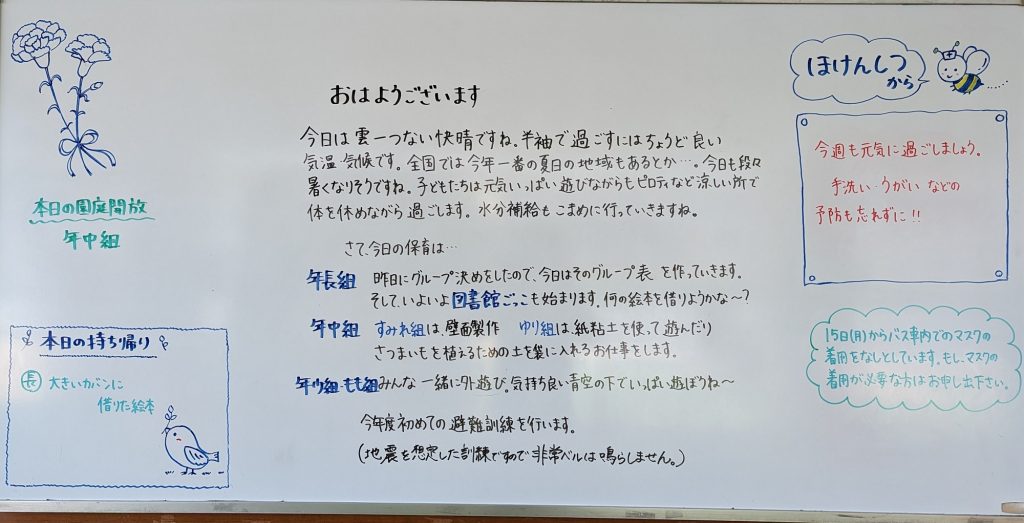 おはようございます
今日は雲一つない快晴ですね。半袖で過ごすにはちょうど良い
気温・気候です。全国では今年一番の夏日の地域もあるとか…。今日も段々
暑くなりそうですね。子どもたちは元気いっぱい遊びながらもピロティなど涼しい所で
体を休めながら過ごします。水分補給もこまめに行っていきますね。
さて、今日の保育は…
年長組 昨日にグループ決めをしたので、今日はそのグループ表を作っていきます。
そして、いよいよ図書館ごっこも始まります。何の絵本を借りようかな〜?
年中組 すみれ組は、壁面製作 ゆり組は、紙粘土を使って遊んだり
さつまいもを植えるための土を袋に入れるお仕事をします。
年少組・もも組 みんな一緒に外遊び。気持ち良い青空の下でいっぱい遊ぼうね〜
今年度初めての避難訓練を行います。
(地震を想定した訓練ですので非常ベルは鳴らしません。)
本日の園庭開放
年中組
本日の持ち帰り
長 大きいカバンに
借りた絵本
ほけんしつ
から
今週も元気に過ごしましょう。
手洗い・うがいなどの
予防も忘れずに!!
15日(月)からバス車内でのマスクの
着用をなしとしています。もし、マスクの
着用が必要な方はお申し出下さい。